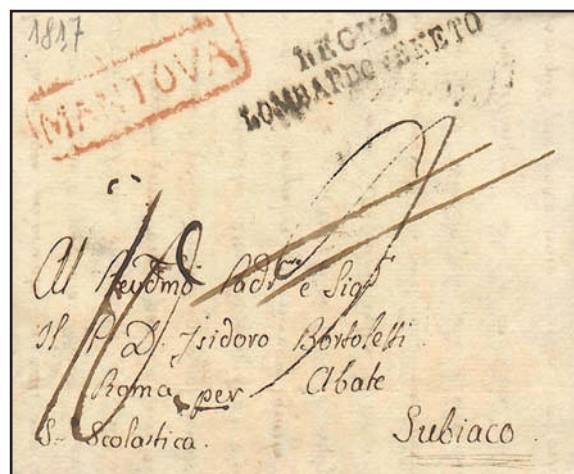 1817
MANTOVA
REGNO
LOMBARDO VENETO
Al Revdmo Padre e Sigr
Il P. D. Isidoro Bortoletti
Roma per Abate
S. Scolastica.
Subiaco.